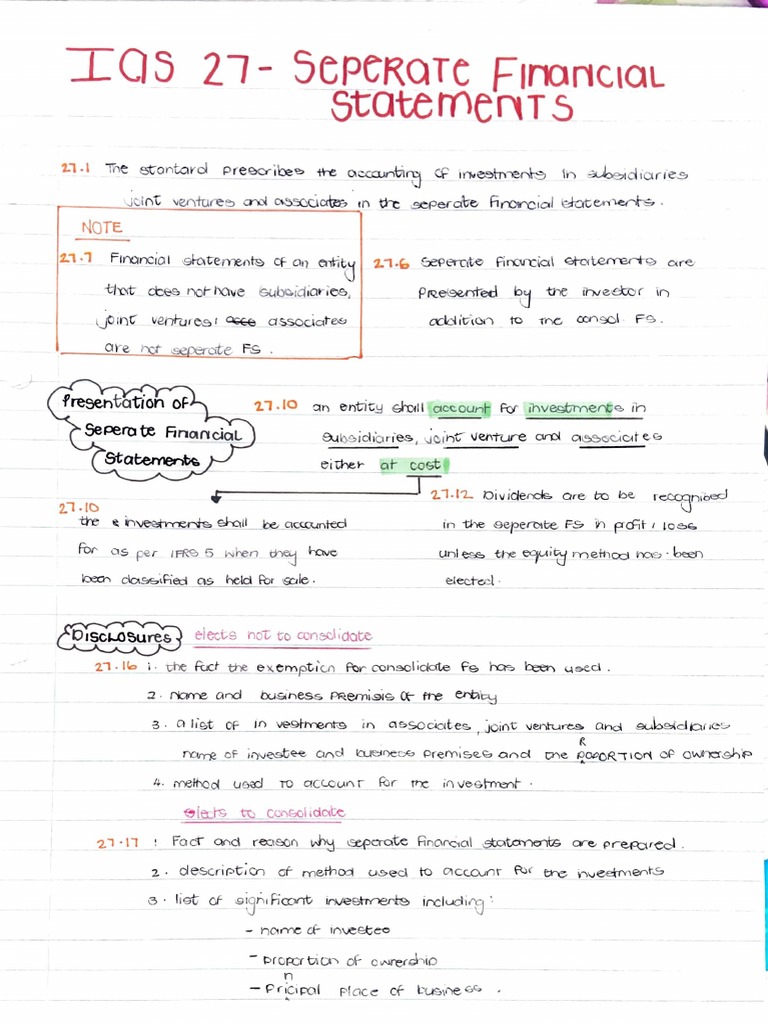 IAS 27 - SEPERATE FINANCIAL
STATEMENTS
27.1 The standard prescribes the accounting of investments in subsidiaries
joint ventures and associates in the seperate financial statements.
NOTE
27.7 Financial statements of an entity
that does not have subsidiaries,
joint ventures, associates
are not seperate FS.
27.6 Seperate financial statements are
presented by the investor in
addition to the consol FS.
Presentation of
Seperate Financial
Statements
27.10 an entity shall account for investments in
subsidiaries, joint venture and associates
either at cost
27.10
the investments shall be accounted
for as per IFRS 5 when they have
been classified as held for sale.
27.12 Dividends are to be recognised
in the seperate FS in profit / loss
unless the equity method has been
elected.
DISCLOSURES elects not to consolidate
27.16 1. the fact the exemption for consolidate FS has been used.
2. Name and business premisis of the entity
3. a list of investments in associates, joint ventures and subsidiaries
name of investee and business premises and the PROPORTION of ownership
4. method used to account for the investment.
elects to consolidate
27.17 1 Fact and reason why seperate financial statements are prepared.
2. description of method used to account for the investments
3. list of significant investments including:
- name of investee
- proportion of ownership
- Principal place of business.